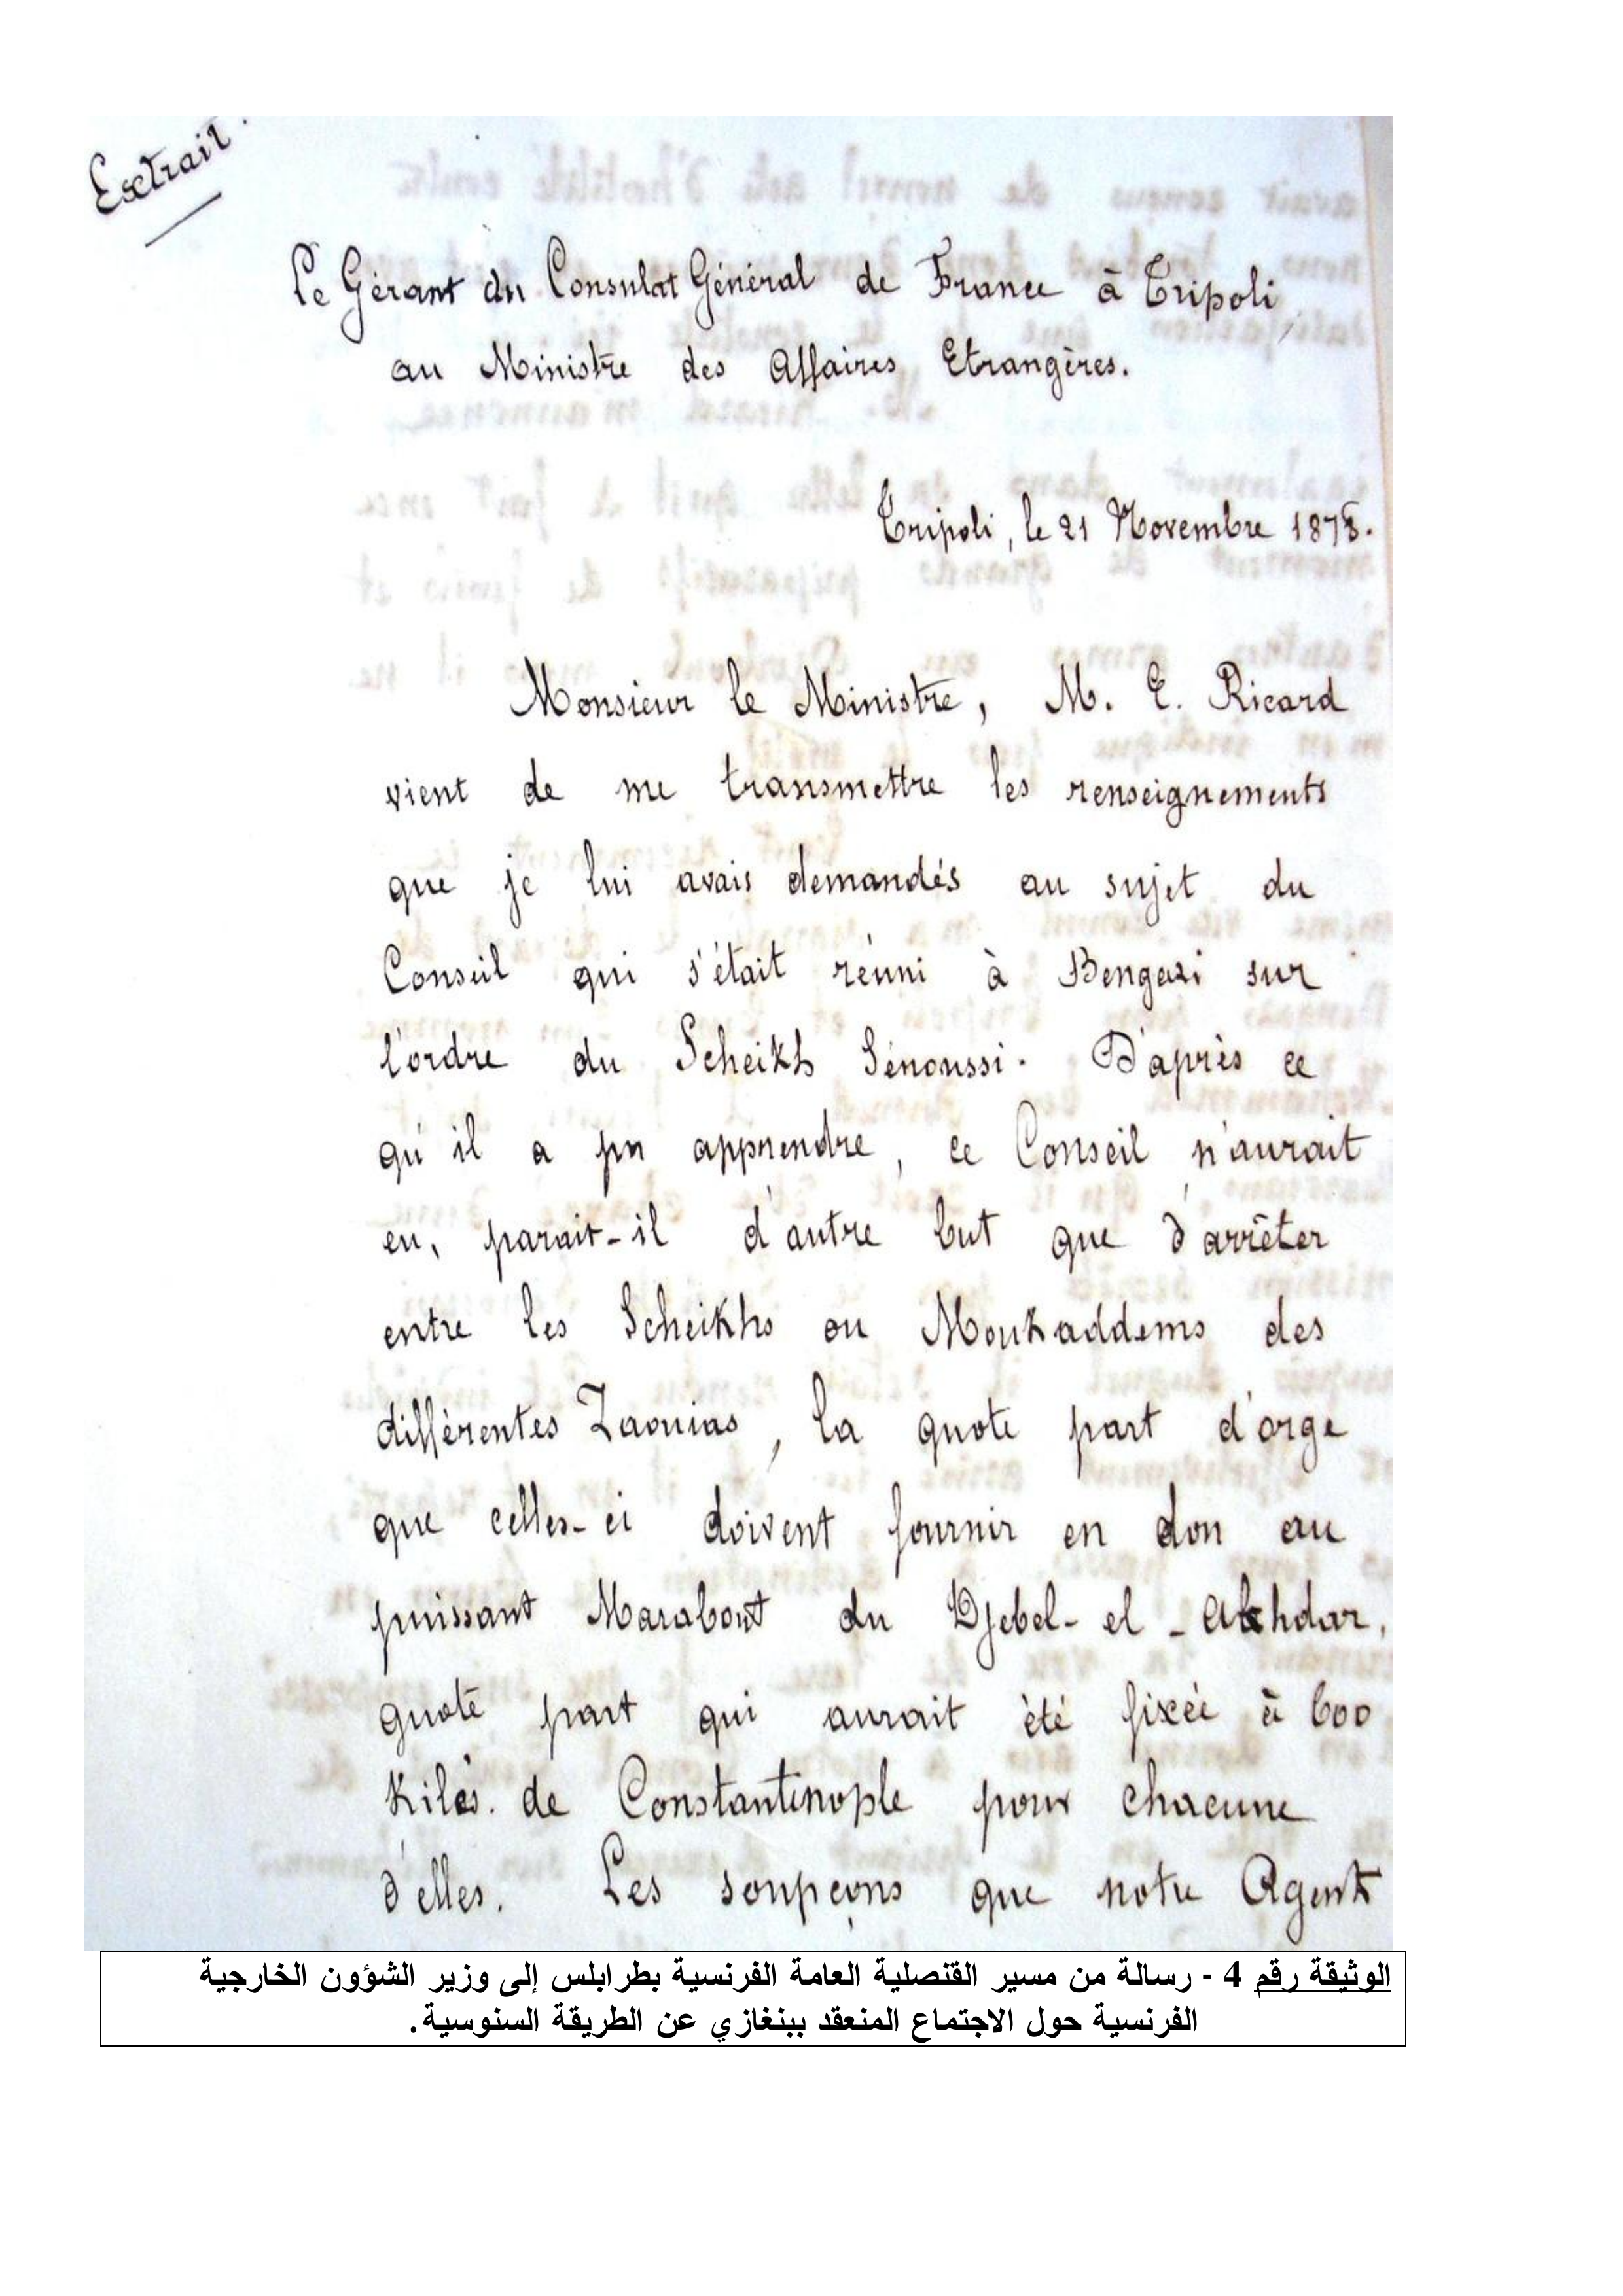 Extrait.
Le Gérant du Consulat Général de France à Tripoli
au Ministre des Affaires Etrangères.
Tripoli, le 21 Novembre 1878.
Monsieur le Ministre, M. E. Ricard
vient de me transmettre les renseignements
que je lui avais demandés au sujet du
Conseil qui s'était réuni à Bengazi sur
l'ordre du Scheikh Senoussi. D'après ce
qu'il a pu apprendre, ce Conseil n'aurait
eu, parait-il d'autre but que d'arrêter
entre les Scheikhs ou Moukaddems des
différentes Zaouias, la quote part d'orge
que celles-ci doivent fournir en don au
puissant Marabout du Djebel-el-Akhdar,
quote part qui aurait été fixée à 600
Kilés. de Constantinople pour chacune
d'elles. Les soupçons que notre Agent
الوثيقة رقم 4 - رسالة من مسير القنصلية العامة الفرنسية بطرابلس إلى وزير الشؤون الخارجية
الفرنسية حول الاجتماع المنعقد ببنغازي عن الطريقة السنوسية.